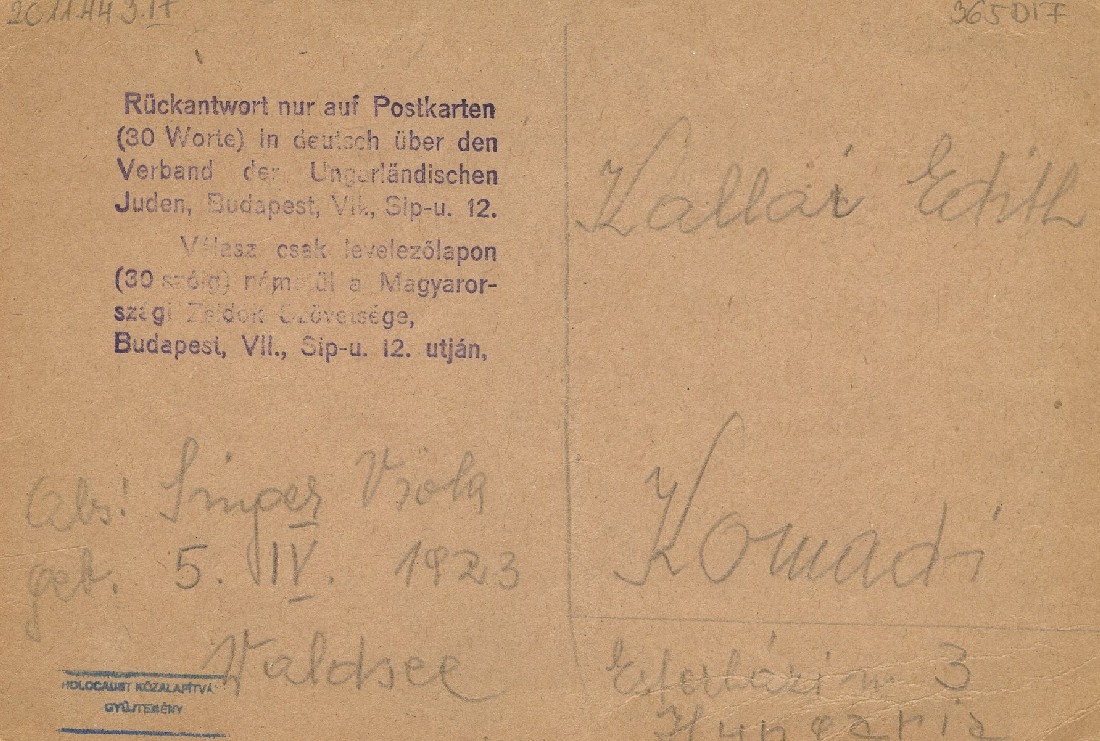 2011.443.17
365 DIF
Rückantwort nur auf Postkarten
(30 Worte) in deutsch über den
Verband der Ungarländischen
Juden, Budapest, VII., Sip-u. 12.
Válasz csak levelezőlapon
(30 szóig) németül a Magyaror-
szági Zsidók Szövetsége,
Budapest, VII., Sip-u. 12. utján,
Kallai Edith
Komadi
3
Hungaria
Abs! Singer Viola
geb. 5. IV. 1923
Waldsee
HOLOCAUST KÖZALAPÍTVÁ
GYŰJTEMÉNY